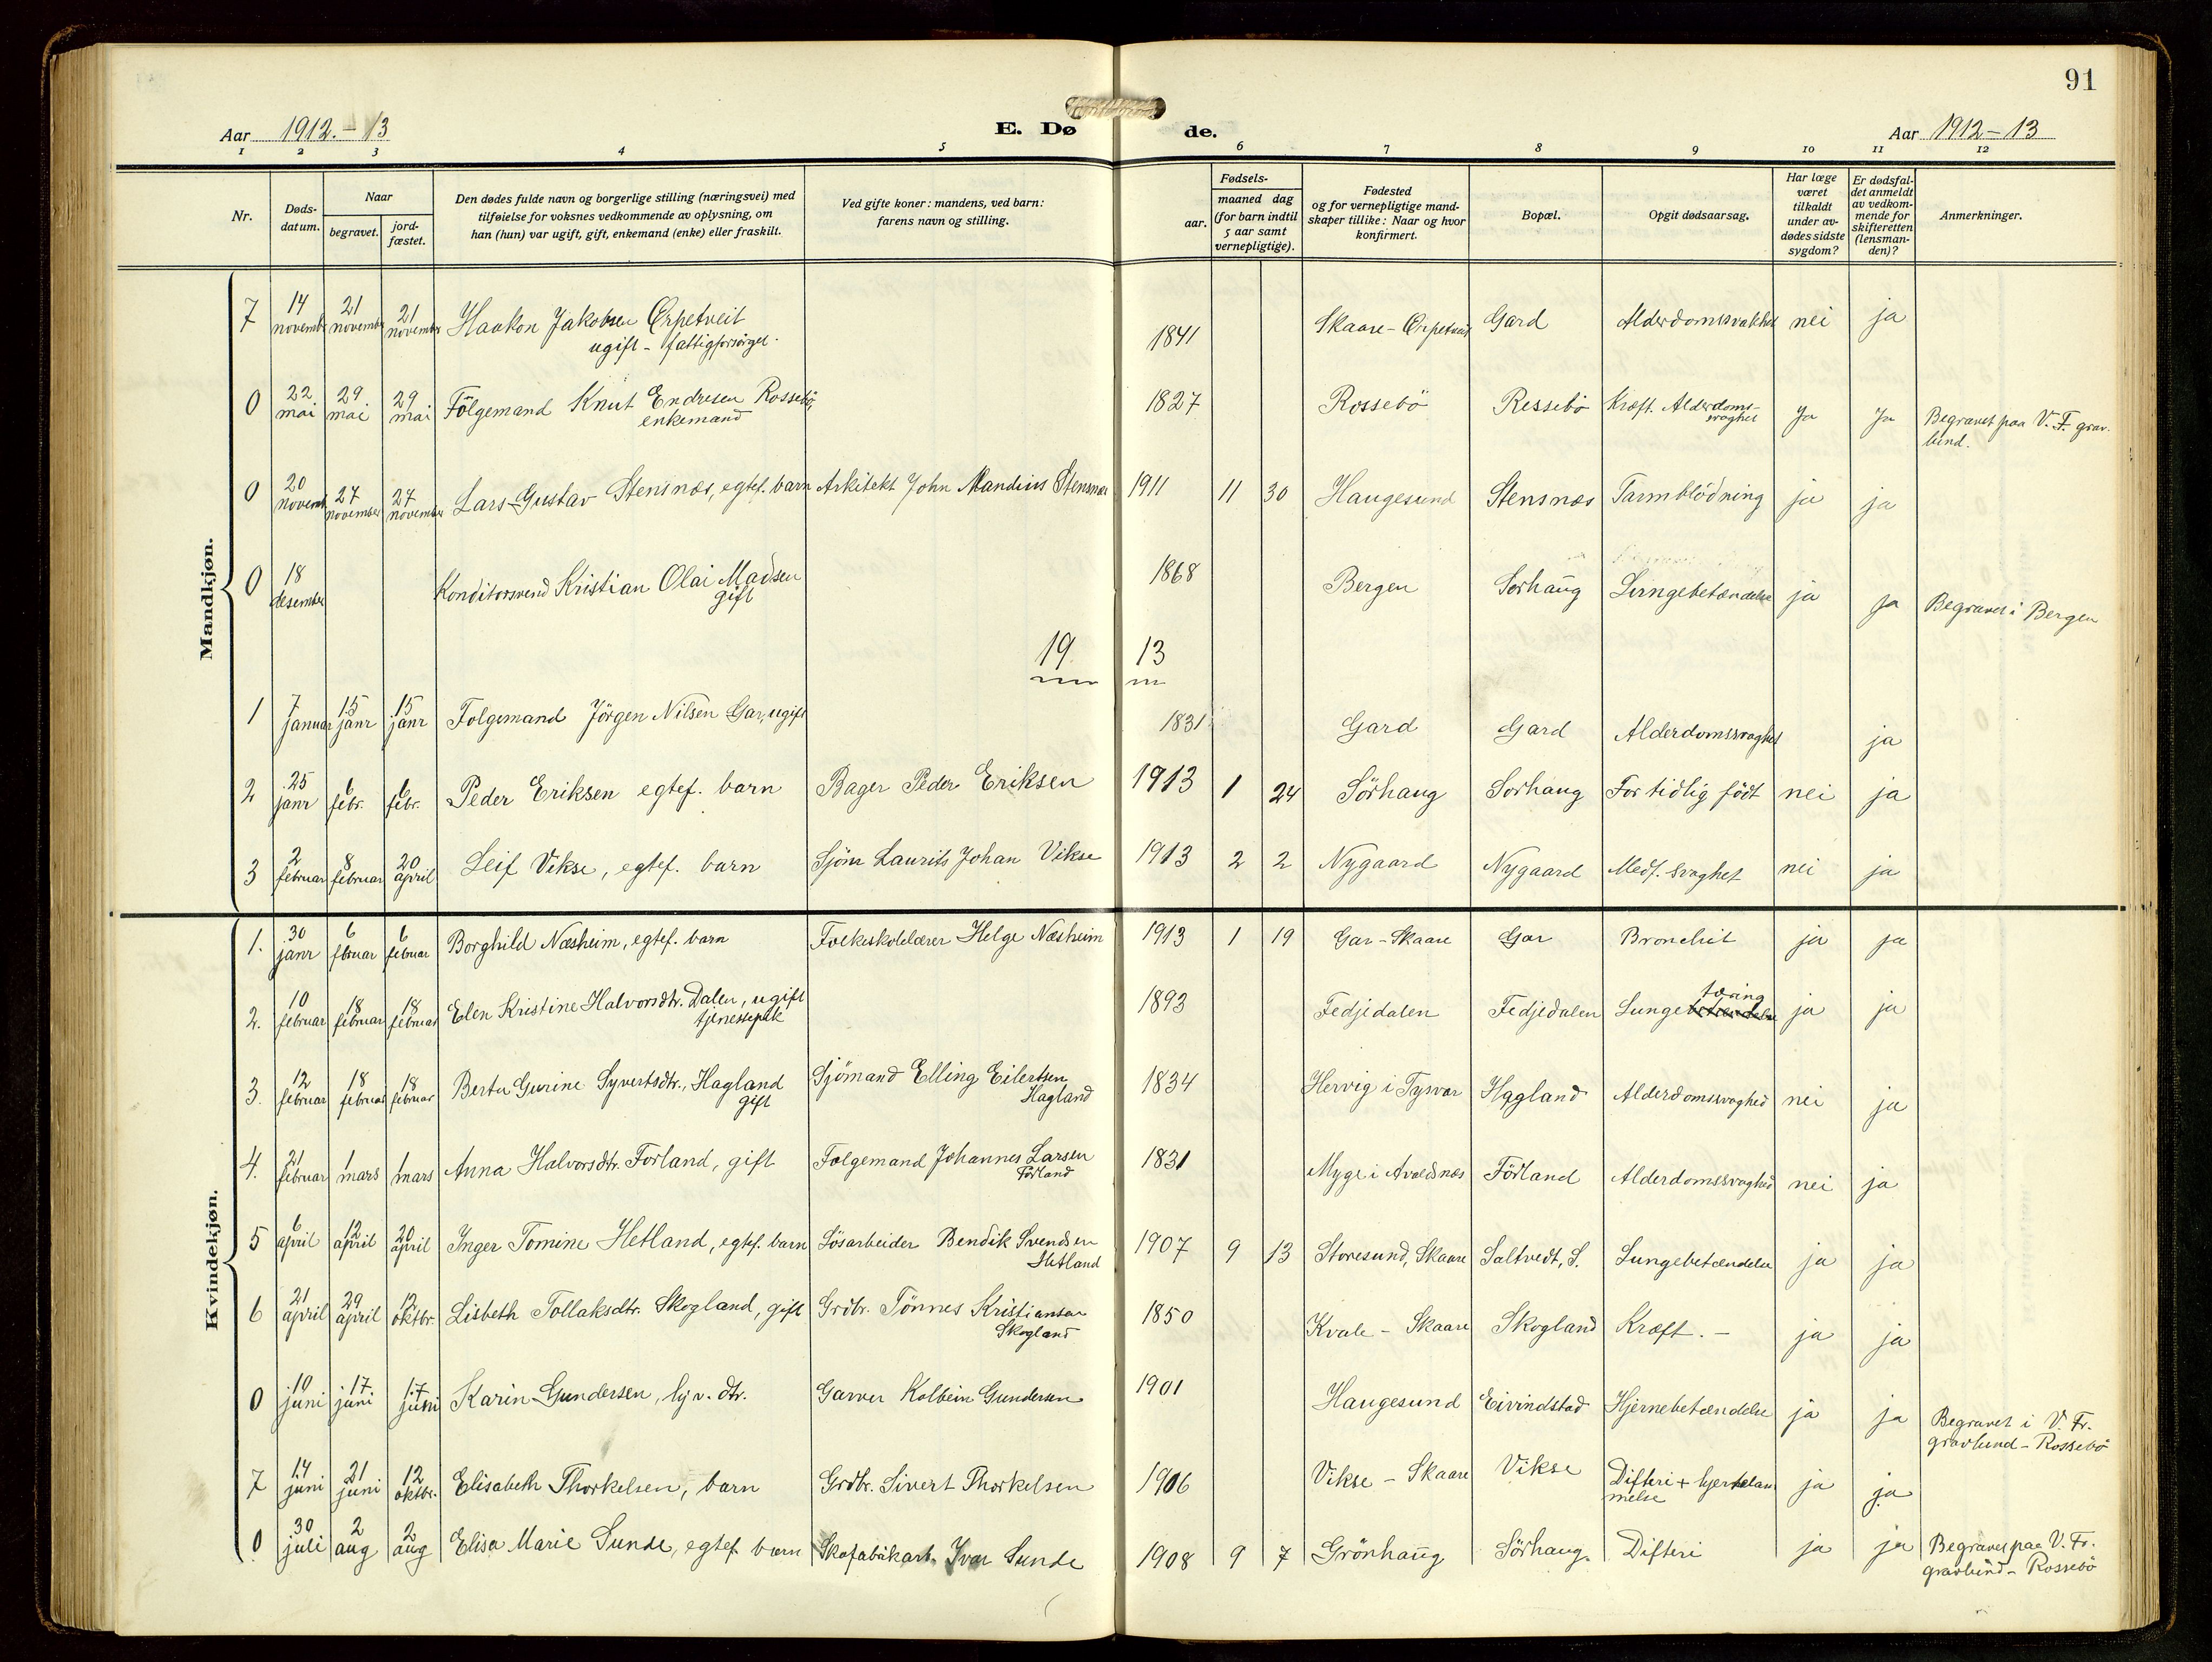 91
Aar 1912.-13 E. Dø de. Aar 1912-13
1 2 3 4 5 6 7 8 9 10 11 12
Nr. Døds-datum. Naar begravet. jord-fæstet. Den dødes fulde navn og borgerlige stilling (næringsvei) med tilføielse for voksnes vedkommende av oplysning, om han (hun) var ugift, gift, enkemand (enke) eller fraskilt. Ved gifte koner: mandens, ved barn: farens navn og stilling. Fødsels- aar. maaned dag (for barn indtil 5 aar samt vernepligtige). Fødested og for vernepligtige mand-skaper tillike: Naar og hvor konfirmert. Bopæl. Opgit dødsaarsag. Har læge været tilkaldt under av-dødes sidste sygdom? Er dødsfal-det anmeldt av vedkom-mende for skifteretten (lensman-den)? Anmerkninger.
Mandkjøn.
7 14 novemb 21 november 21 november Haakon Jakobsen Erpetveit ugift - fattigforsörget. 1841 Skaare - Erpetveit Gard Alderdomssvakhet nei ja
0 22 mai 29 mai 29 mai Fölgemand Knut Endresen Rossebö, enkemand 1827 Rossebö Rossebö Kræft. Alderdoms-svaghet Ja Ja Begravet paa V. F. grav-lund.
0 20 novemb 27 november 27 november Lars Gustav Stensnæs, egtef. barn Arkitekt John Mandius Stensnæs 1911 11 30 Haugesund Stensnæs Tarmblödning ja ja
0 18 desember Konditorsvend Kristian Olai Madsen gift 1868 Bergen Sorhaug Lungebetændelse ja ja Begravet i Bergen
19 13
1 7 januar 15 janr 15 janr Folgemand Jörgen Nilsen Gar, ugift 1831 Gard Gard Alderdomssvaghet ja
2 25 janr 6 febr. 6 febr. Peder Eriksen egtef. barn Bager Peder Eriksen 1913 1 24 Sörhaug Sorhaug For tidlig födt nei ja
3 2 februar 8 februar 20 april Leif Vikse, egtef. barn Sjöm Laurits Johan Vikse 1913 2 2 Nygaard Nygaard Medf. svaghet nei ja
Kvindekjøn.
1. 30 janr 6 februar 6 februar Borghild Næsheim, egtef. barn Folkeskolelærer Helge Næsheim 1913 1 19 Gar - Skaare Gar Bronchit ja ja
2. 10 februar 18 februar 18 februar Elen Kristine Halvorsdtr. Dalen, ugift tjenestepik 1893 Fedjedalen Fedjedalen Lungebetændelse tæring ja ja
3. 12 februar 18 februar 18 februar Berta Gurine Syvertsdtr. Hagland gift Sjömand Elling Eilertsen Hagland 1834 Hervig i Tysvær Hagland Alderdomssvaghed nei ja
4. 21 februar 1 mars 1 mars Anna Halvorsdtr. Forland, gift Folgemand Johannes Larsen Förland 1831 Myge i Avaldsnæs Förland Alderdomssvaghed nei ja
5 6 april 12 april 20 april Inger Tomine Hetland, egtef. barn Lösarbeider Bendik Svendsen Hetland 1907 9 13 Storesund, Skaare Saltvedt, S. Lungebetændelse ja ja
6 21 april 29 april 12 oktbr. Lisbeth Tollaksdtr. Skogland, gift Grdbr. Tönnes Kristiansen Skogland 1850 Kvale - Skaare Skogland Kræft. - ja ja
0 10 juni 17 juni 17 juni Karin Gundersen, hjv. dtr. Garver Kolbein Gundersen 1901 Haugesund Eivindstad Hjernebetændelse ja ja Begravet i V. Fr. gravlund - Rossebö
7 14 juni 21 juni 12 oktbr. Elisabeth Thorkelsen, barn Grdbr. Sivert Thorkelsen 1906 Vikse - Skaare Vikse Difteri + hjertelam-melse ja ja
0 30 juli 2 aug 2 aug Elisa Marie Sunde, egtef. barn Skofabrikarb. Ivar Sunde 1908 9 7 Grönhaug Sörhaug. Difteri ja ja Begravet paa V. Fr. gravlund - Rossebö